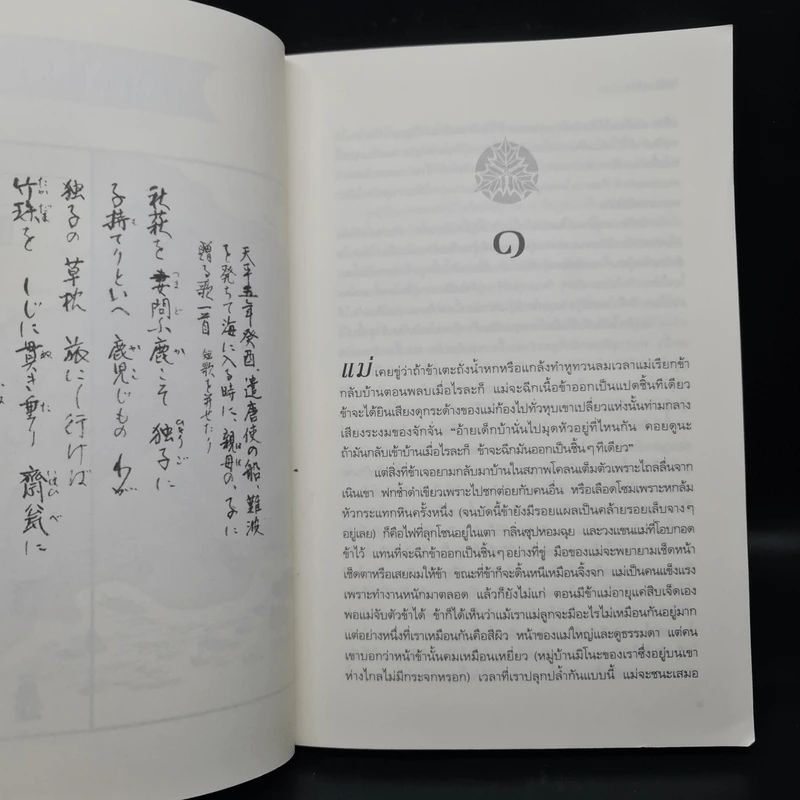 天平五年癸酉、遣唐使の船、難波
を発ちて海に入る時に、親母の、子に
贈る歌一首 短歌を并せたり
秋萩を 妻問ふ鹿こそ 独子に
子持てりといへ 鹿児じもの わが
独子の 草枕 旅にし行けば
竹珠を しじに貫き垂り 齋瓮に
๑
แม่เคยขู่ว่าถ้าข้าเตะถังน้ำหกหรือแกล้งทำหูทวนลมเวลาแม่เรียกข้า
กลับบ้านตอนพลบเมื่อไรละก็ แม่จะฉีกเนื้อข้าออกเป็นแปดชิ้นทีเดียว
ข้าจะได้ยินเสียงดุกระด้างของแม่ก้องไปทั่วหุบเขาเปลี่ยวแห่งนั้นท่ามกลาง
เสียงระงมของจักจั่น “อ้ายเด็กบ้านั่นไปมุดหัวอยู่ที่ไหนกัน คอยดูนะ
ถ้ามันกลับเข้าบ้านเมื่อไรละก็ ข้าจะฉีกมันออกเป็นชิ้นๆ ทีเดียว”
แต่สิ่งที่ข้าเจอยามกลับมาบ้านในสภาพโคลนเต็มตัวเพราะไถลลื่นจาก
เนินเขา ฟกช้ำดำเขียวเพราะไปชกต่อยกับคนอื่น หรือเลือดโซมเพราะหกล้ม
หัวกระแทกหินครั้งหนึ่ง (จนบัดนี้ข้ายังมีรอยแผลเป็นคล้ายรอยเล็บจางๆ
อยู่เลย) ก็คือไฟที่ลุกโชนอยู่ในเตา กลิ่นซุปหอมฉุย และวงแขนแม่ที่โอบกอด
ข้าไว้ แทนที่จะฉีกข้าออกเป็นชิ้นๆ อย่างที่ขู่ มือของแม่จะพยายามเช็ดหน้า
เช็ดตาหรือเสยผมให้ข้า ขณะที่ข้าก็จะดิ้นหนีเหมือนจิ้งจก แม่เป็นคนแข็งแรง
เพราะทำงานหนักมาตลอด แล้วก็ยังไม่แก่ ตอนมีข้าแม่อายุแค่สิบเจ็ดเอง
พอแม่จับตัวข้าได้ ข้าก็ได้เห็นว่าแม้เราแม่ลูกจะมีอะไรไม่เหมือนกันอยู่มาก
แต่อย่างหนึ่งที่เราเหมือนกันคือสีผิว หน้าของแม่ใหญ่และดูธรรมดา แต่คน
เขาบอกว่าหน้าข้านั้นคมเหมือนเหยี่ยว (หมู่บ้านมิโนะของเราซึ่งอยู่บนเขา
ห่างไกลไม่มีกระจกหรอก) เวลาที่เราปลุกปล้ำกันแบบนี้ แม่จะชนะเสมอ